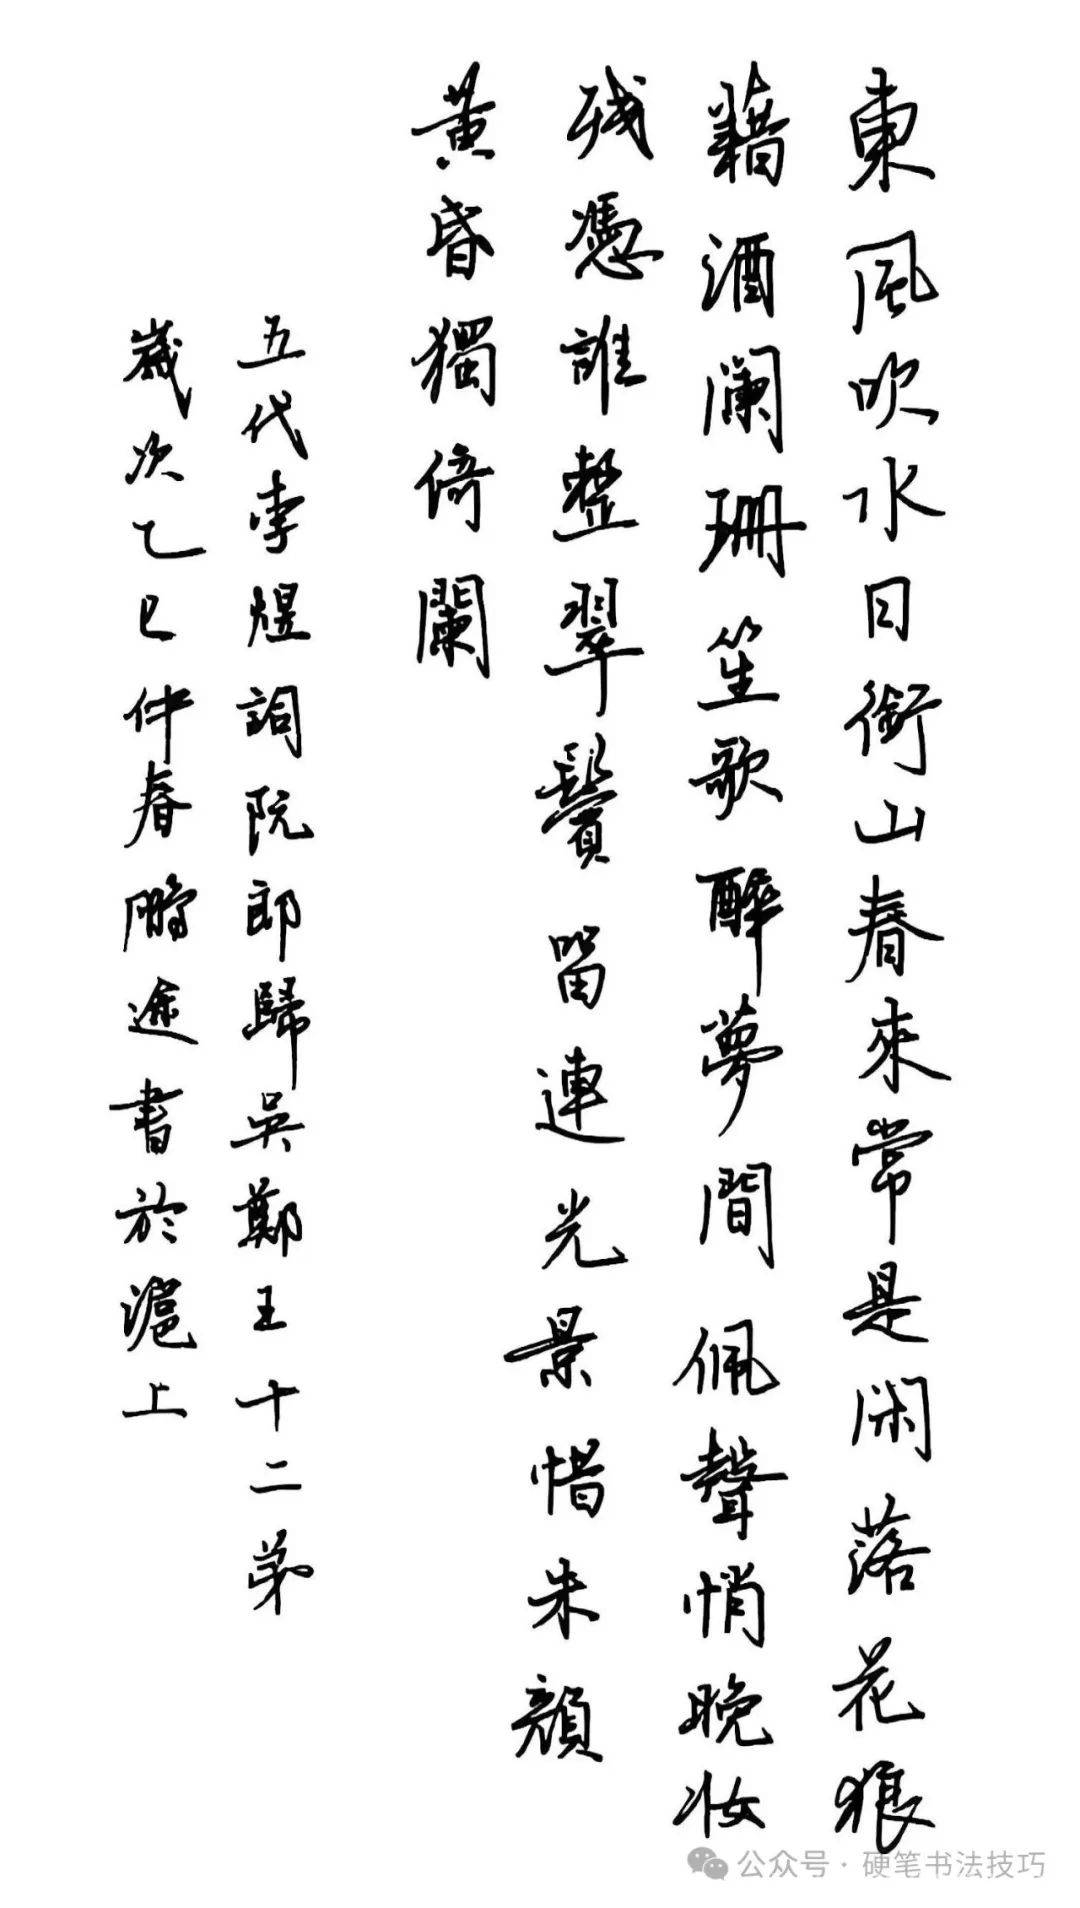 東風吹水日銜山春來常是閑落花狼
藉酒闌珊笙歌醉夢間佩聲悄晚妆
残憑誰整翠鬢留連光景惜朱顔
黄昏獨倚闌
五代李煜詞阮郎歸吳鄭王十二弟
歲次乙巳仲春鵬途書於滬上
公众号·硬笔书法技巧